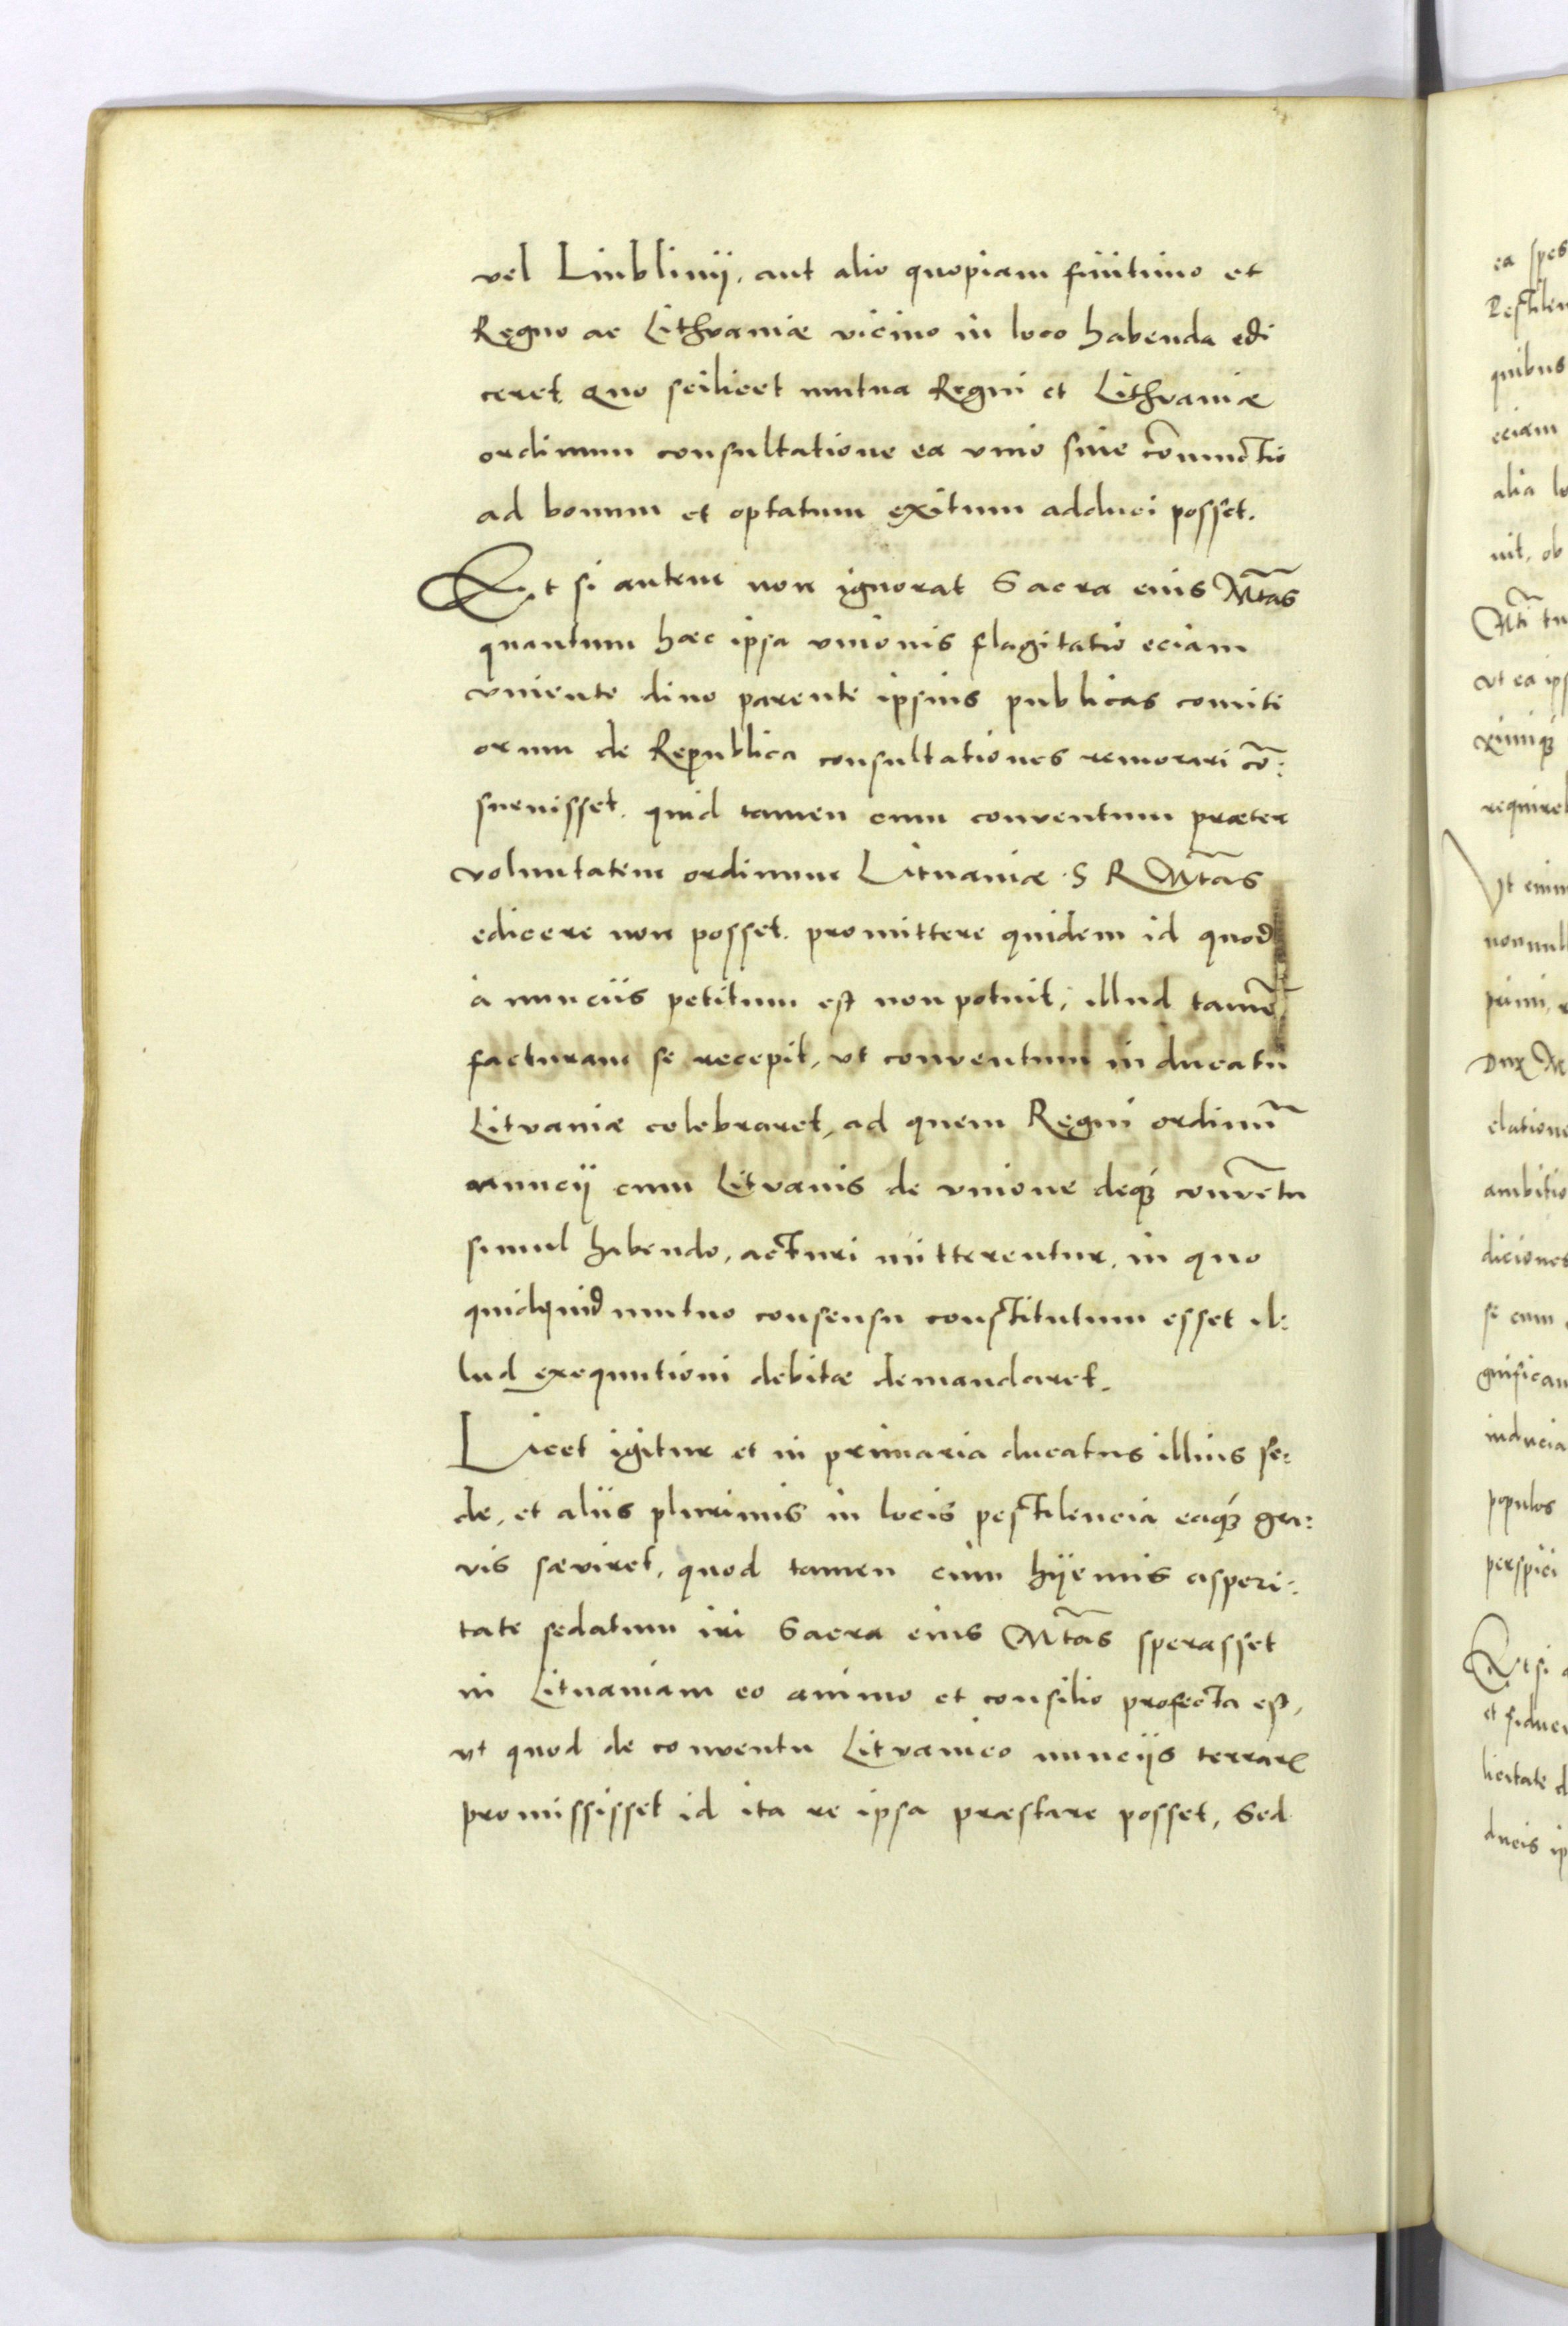 vel Liublinij, aut alio quopiam finitimo et
Regno ac Lithvaniæ vicino in loco habenda edi
ceret, quo scilicet mutua Regni et Lithvaniæ
ordinum consultatione ea vnio siue cõiunctio
ad bonum et optatum exitum adduci posset.
Et si autem non ignorat Sacra eius Mtãs
quantum hæc ipsa vnionis flagitatio eciam
viuente diuo parente ipsius publicas comiti
orum de Republica consultationes remorari cõ:
sueuisset. quid tamen cum conuentum præter
voluntatem ordinum Lituaniæ S R Mtãs
edicere non posset. promittere quidem id quod
à nunciis petitum est non potuit, illud tamẽ
facturam se recepit, vt conventum in ducatu
Litvaniæ celebraret, ad quem Regni ordinũ
nuncij cum Litvanis de vnione deq́ꝫ convẽtu
simul habendo, acturi mitterentur, in quo
quidquid mutuo consensu constitutum esset il:
lud exequutioni debitæ demandaret.
Licet igitur et in primaria ducatus illius se:
de, et aliis plurimis in locis pestilencia eaq́ꝫ gra:
vis sæviret, quod tamen cum hÿemis asperi:
tate sedatum iri Sacra eius Mtãs sperasset
in Lituaniam eo animo et consilio profecta est,
vt quod de conventu Litvanico nuncijs terrarꝫ
promississet id ita re ipsa præstare posset, Sed
ea spes
quibus
eciam
nit, ob
vt ea ips
populos
perspici
Et si a